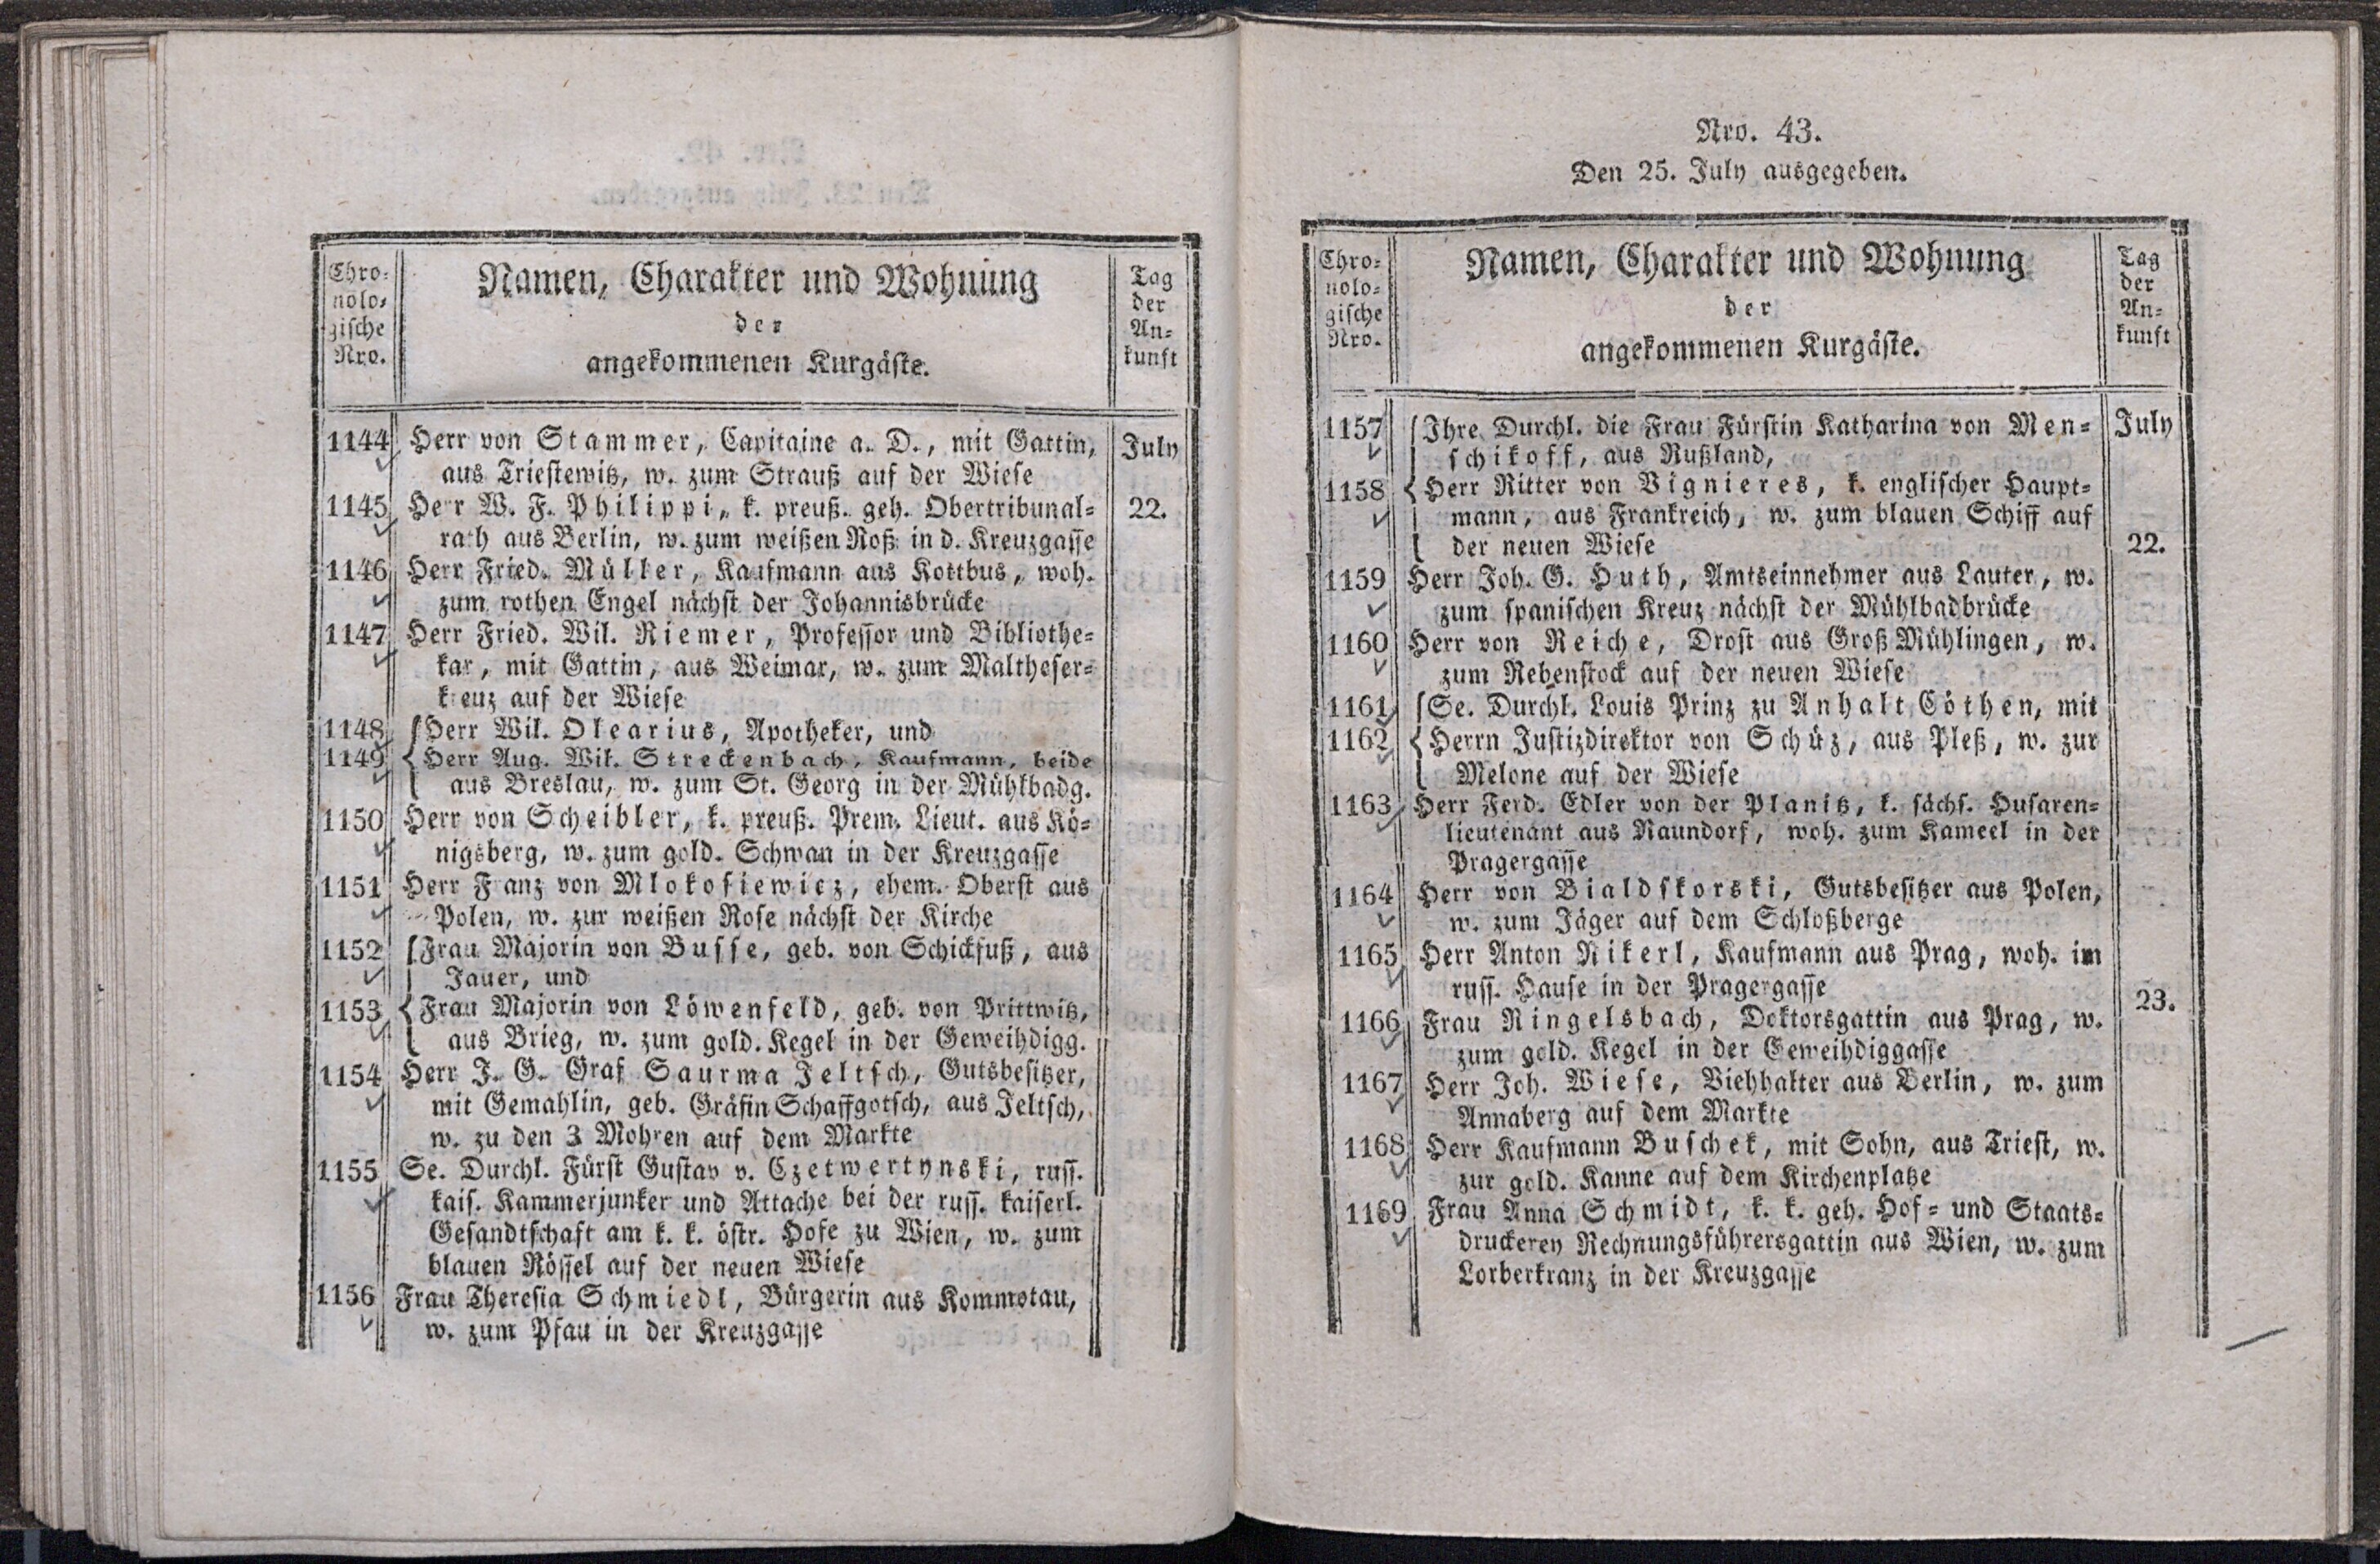 Chro-
nolo-
gische
Nro.
Namen, Charakter und Wohnung
der
angekommenen Kurgäste.
Tag
der
An-
kunft
1144 Herr von Stammer, Capitaine a. D., mit Gattin, July
aus Triestewitz, w. zum Strauß auf der Wiese
1145 Herr W. F. Philippi, k. preuß. geh. Obertribunal- 22.
rath aus Berlin, w. zum weißen Roß in d. Kreuzgasse
1146 Herr Fried. Müller, Kaufmann aus Kottbus, woh.
zum rothen Engel nächst der Johannisbrücke
1147 Herr Fried. Wil. Riemer, Professor und Bibliothe-
kar, mit Gattin, aus Weimar, w. zum Maltheser-
kreuz auf der Wiese
1148 Herr Wil. Olearius, Apotheker, und
1149 Herr Aug. Wil. Streckenbach, Kaufmann, beide
aus Breslau, w. zum St. Georg in der Mühlbadg.
1150 Herr von Scheibler, k. preuß. Prem. Lieut. aus Kö-
nigsberg, w. zum gold. Schwan in der Kreuzgasse
1151 Herr Franz von Mlokosiewicz, ehem. Oberst aus
Polen, w. zur weißen Rose nächst der Kirche
1152 Frau Majorin von Busse, geb. von Schickfuß, aus
Jauer, und
1153 Frau Majorin von Löwenfeld, geb. von Prittwitz,
aus Brieg, w. zum gold. Kegel in der Geweihdigg.
1154 Herr J. G. Graf Saurma Jeltsch, Gutsbesitzer,
mit Gemahlin, geb. Gräfin Schaffgotsch, aus Jeltsch,
w. zu den 3 Mohren auf dem Markte
1155 Se. Durchl. Fürst Gustav v. Czetwertynski, russ.
kais. Kammerjunker und Attache bei der russ. kaiserl.
Gesandtschaft am k. k. östr. Hofe zu Wien, w. zum
blauen Rössel auf der neuen Wiese
1156 Frau Theresia Schmiedl, Bürgerin aus Kommotau,
w. zum Pfau in der Kreuzgasse
Nro. 43.
Den 25. July ausgegeben.
Chro-
nolo-
gische
Nro.
Namen, Charakter und Wohnung
der
angekommenen Kurgäste.
Tag
der
An-
kunft
1157 Ihre Durchl. die Frau Fürstin Katharina von Men- July
schikoff, aus Rußland,
1158 Herr Ritter von Vignieres, k. englischer Haupt-
mann, aus Frankreich, w. zum blauen Schiff auf
der neuen Wiese 22.
1159 Herr Joh. G. Huth, Amtseinnehmer aus Lauter, w.
zum spanischen Kreuz nächst der Mühlbadbrücke
1160 Herr von Reiche, Drost aus Groß Mühlingen, w.
zum Rebenstock auf der neuen Wiese
1161 Se. Durchl. Louis Prinz zu Anhalt Cöthen, mit
1162 Herrn Justizdirektor von Schüz, aus Pleß, w. zur
Melone auf der Wiese
1163 Herr Ferd. Edler von der Planitz, k. sächs. Husaren-
lieutenant aus Naundorf, woh. zum Kameel in der
Pragergasse
1164 Herr von Bialdskorski, Gutsbesitzer aus Polen,
w. zum Jäger auf dem Schloßberge
1165 Herr Anton Nikerl, Kaufmann aus Prag, woh. im
russ. Hause in der Pragergasse 23.
1166 Frau Ringelsbach, Doktorsgattin aus Prag, w.
zum gold. Kegel in der Geweihdiggasse
1167 Herr Joh. Wiese, Viehhalter aus Berlin, w. zum
Annaberg auf dem Markte
1168 Herr Kaufmann Buschek, mit Sohn, aus Triest, w.
zur gold. Kanne auf dem Kirchenplatze
1169 Frau Anna Schmidt, k. k. geh. Hof- und Staats-
druckerey Rechnungsführersgattin aus Wien, w. zum
Lorberkranz in der Kreuzgasse